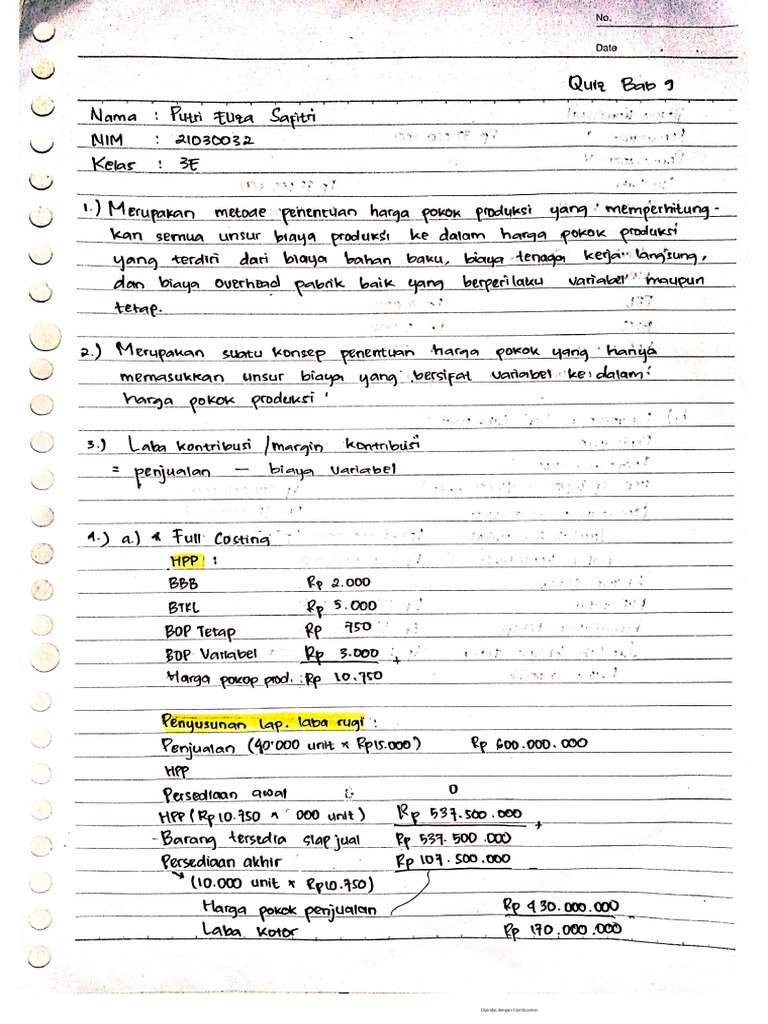 No.
Date
Quiz Bab 9
Nama : Putri Safitri
NIM : 21030032
Kelas : 3E
1.) Merupakan metode penentuan harga pokok produksi yang memperhitung-
kan semua unsur biaya produksi ke dalam harga pokok produksi
yang terdiri dari biaya bahan baku, biaya tenaga kerja langsung,
dan biaya overhead pabrik baik yang berperilaku variabel maupun
tetap.
2.) Merupakan suatu konsep penentuan harga pokok yang hanya
memasukkan unsur biaya yang bersifat variabel ke dalam
harga pokok produksi
3.) Laba kontribusi / margin kontribusi
= penjualan - biaya variabel
4.) a.) * Full Costing
HPP :
BBB Rp 2.000
BTKL Rp 5.000
BOP Tetap Rp 750
BOP Variabel Rp 3.000 +
Harga pokop prod. : Rp 10.750
Penyusunan lap. laba rugi :
Penjualan (40.000 unit x Rp15.000) Rp 600.000.000
HPP
Persediaan awal 0
HPP (Rp 10.750 x 000 unit) Rp 537.500.000 +
- Barang tersedia siap jual Rp 537.500.000
Persediaan akhir Rp 107.500.000
(10.000 unit x Rp10.750)
Harga pokok penjualan Rp 430.000.000 -
Laba kotor Rp 170.000.000
Dipindai dengan CamScanner